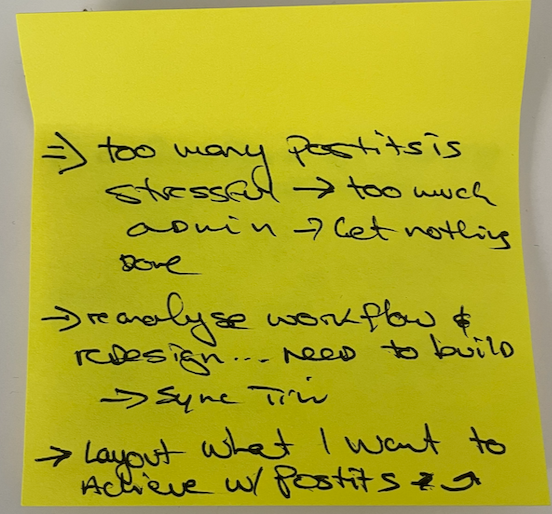 ⇒ too many Postits is
stressful → too much
admin → Get nothing
done
→ reanalyse workflow &
redesign... need to build
→ Sync
→ Layout what I want to
Achieve w/ Postits